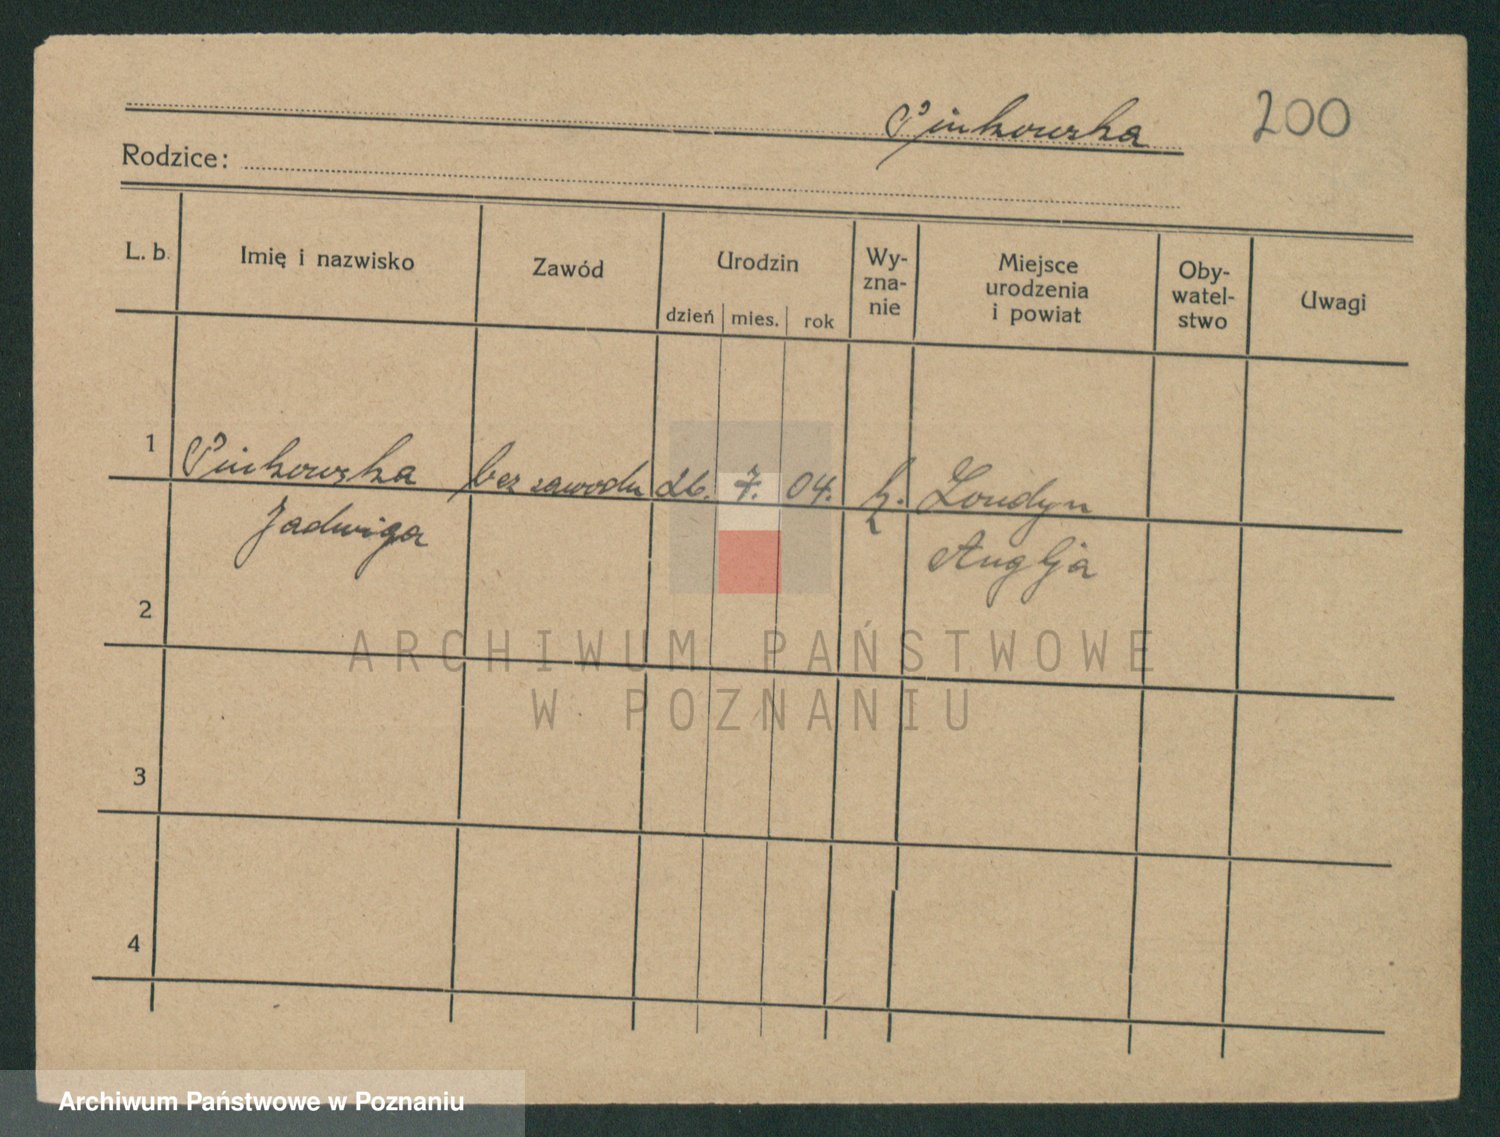 Pinkowska
200
Rodzice:
L. b.
Imię i nazwisko
Zawód
Urodzin
dzień
mies.
rok
Wy-
zna-
nie
Miejsce
urodzenia
i powiat
Oby-
watel-
stwo
Uwagi
1
Pinkowska
Jadwiga
bez zawodu
26.
7.
04.
k.
Londyn
Anglja
2
3
4
ARCHIWUM PAŃSTWOWE
W POZNANIU
Archiwum Państwowe w Poznaniu